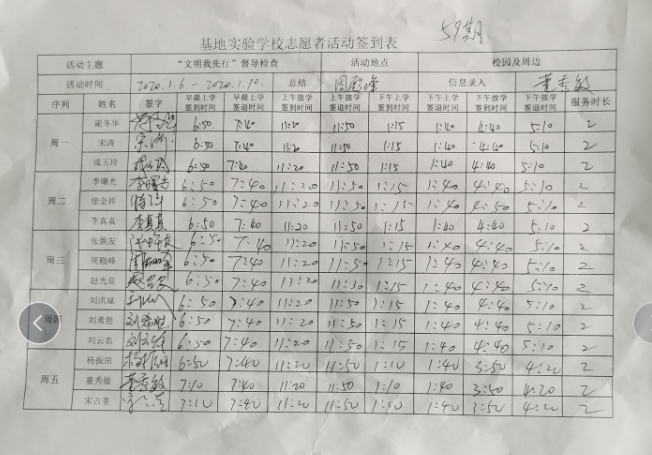 59期
基地实验学校志愿者活动签到表
活动主题 “文明我先行”督导检查 活动地点 校园及周边
活动时间 2020.1.6-2020.1.10. 总结 周殿峰 信息录入 董秀敏
序列 姓名 签字 早晨上学签到时间 早晨上学签退时间 上午放学签到时间 上午放学签退时间 下午上学签到时间 下午上学签退时间 下午放学签到时间 下午放学签退时间 服务时长
周一 蔺冬华 6:50 7:40 11:20 11:50 1:15 1:40 4:40 5:10 2
宋涛 宋涛 6:50 7:40 11:20 11:50 1:15 1:40 4:40 5:10 2
成玉玲 6:50 7:40 11:20 11:50 1:15 1:40 4:40 5:10 2
周二 李曙光 李曙光 6:50 7:40 11:20 11:50 1:15 1:40 4:40 5:10 2
徐金祥 6:50 7:40 11:20 11:50 1:15 1:40 4:50 5:10 2
李真真 李真真 6:50 7:40 11:20 11:50 1:15 1:40 4:40 5:10 2
周三 张焕友 6:50 7:40 11:20 11:50 1:15 1:40 4:40 5:10 2
周殿峰 6:50 7:40 11:20 11:50 1:15 1:40 4:40 5:10 2
赵光良 6:50 7:40 11:20 11:30 1:15 1:40 4:40 5:10 2
周四 刘洪斌 6:50 7:40 11:20 11:50 1:15 1:40 4:40 5:10 2
刘希胜 刘希胜 6:50 7:40 11:20 11:50 1:15 1:40 4:40 5:10 2
刘云农 6:50 7:40 11:20 11:50 1:15 1:40 4:40 5:10 2
周五 杨振田 6:50 7:40 11:20 11:50 1:10 1:40 3:50 4:20 2
董秀敏 董秀敏 7:10 7:40 11:20 11:50 1:10 1:40 3:50 4:20 2
宋占奎 7:10 7:40 11:20 11:50 1:10 1:40 3:50 4:20 2